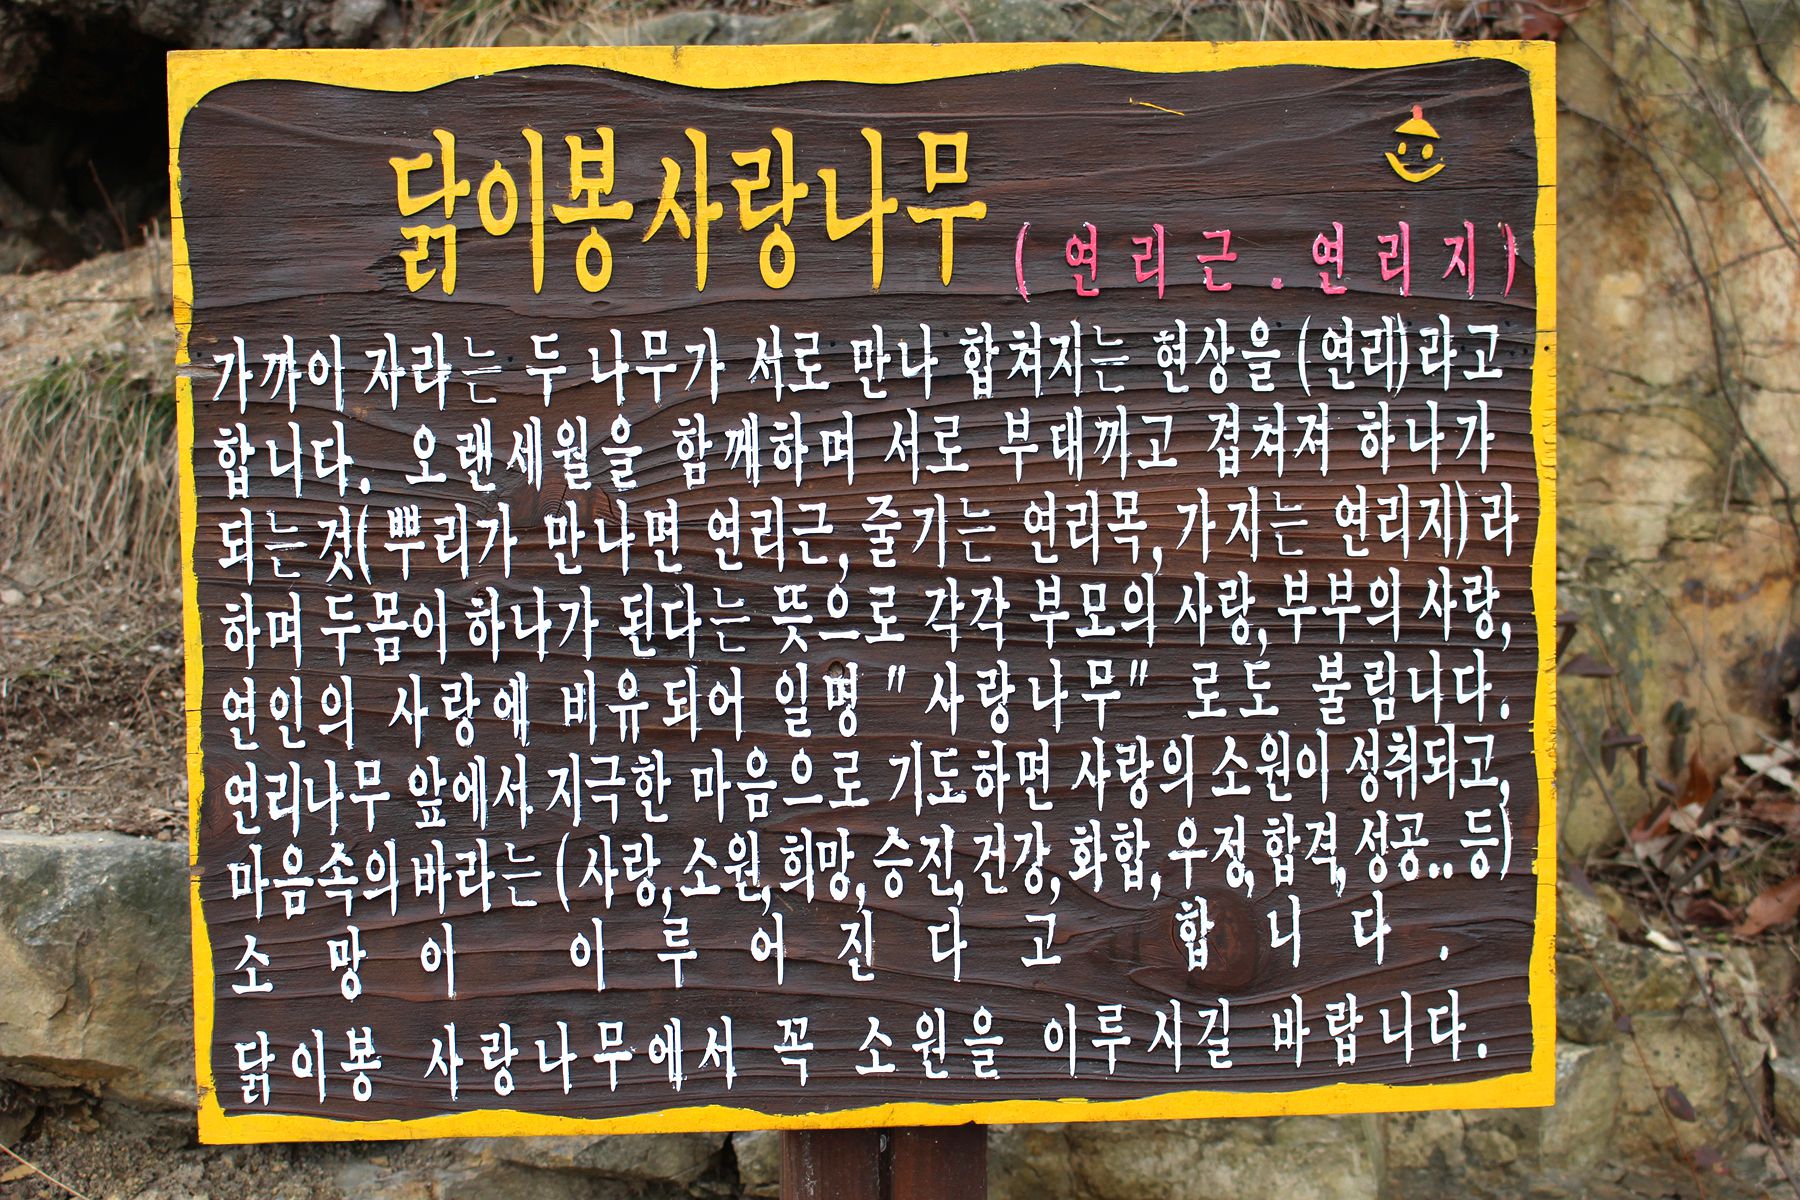 닭이봉사랑나무
(연리근.연리지)
가까이 자라는 두 나무가 서로 만나 합쳐지는 현상을 (연리)라고
합니다. 오랜세월을 함께하며 서로 부대끼고 겹쳐져 하나가
되는것(뿌리가 만나면 연리근, 줄기는 연리목, 가지는 연리지)라
하며 두몸이 하나가 된다는 뜻으로 각각 부모의 사랑, 부부의 사랑,
연인의 사랑에 비유되어 일명 "사랑나무" 로도 불림니다.
연리나무 앞에서 지극한 마음으로 기도하면 사랑의 소원이 성취되고,
마음속의 바라는 (사랑, 소원, 희망, 승진, 건강, 화합, 우정, 합격, 성공.. 등)
소망이 이루어진다고 합니다.
닭이봉 사랑나무에서 꼭 소원을 이루시길 바랍니다.